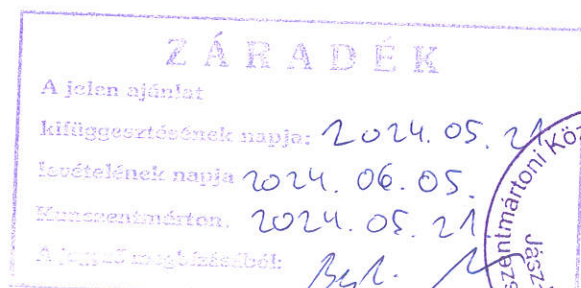 ZÁRADÉK
A jelen ajánlat
kifüggesztésének napja: 2024. 05. 21
levételének napja 2024. 06. 05.
Kunszentmárton. 2024. 05. 21.
A jegyző megbízásából:
szentmártoni Köz
Jász